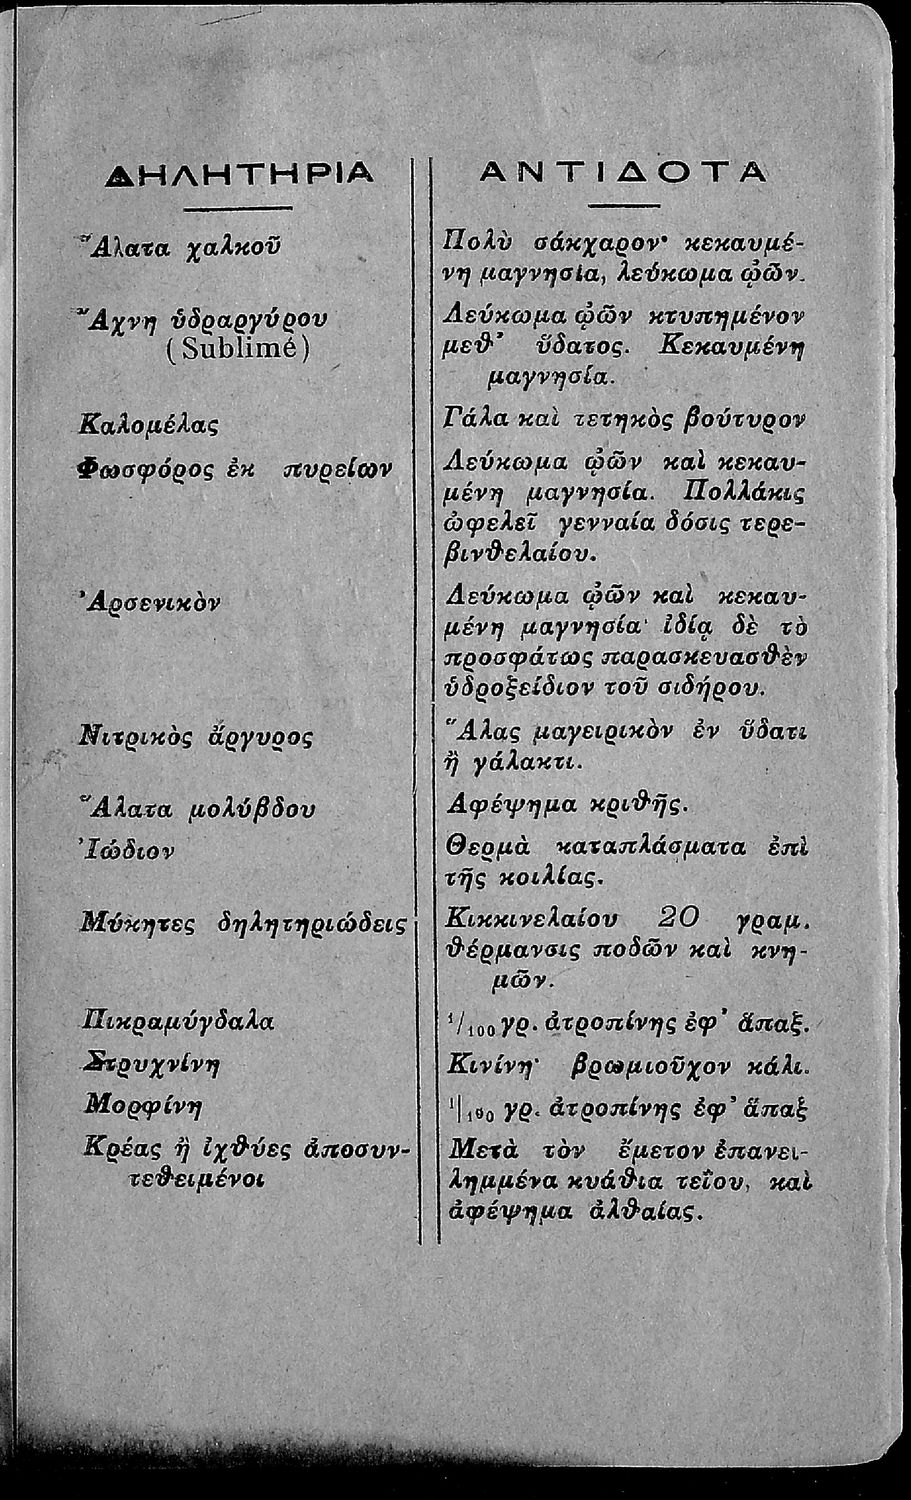 ΔΗΛΗΤΗΡΙΑ
Ἅλατα χαλκοῦ
Ἄχνη ὑδραργύρου
(Sublimé)
Καλομέλας
Φωσφόρος ἐκ πυρείων
Ἀρσενικὸν
Νιτρικὸς ἄργυρος
Ἅλατα μολύβδου
Ἰώδιον
Μύκητες δηλητηριώδεις
Πικραμύγδαλα
Στρυχνίνη
Μορφίνη
Κρέας ἢ ἰχθύες ἀποσυν-
τεθειμένοι
ΑΝΤΙΔΟΤΑ
Πολὺ σάκχαρον· κεκαυμέ-
νη μαγνησία, λεύκωμα ᾠῶν.
Λεύκωμα ᾠῶν κτυπημένον
μεθ’ ὕδατος. Κεκαυμένη
μαγνησία.
Γάλα καὶ τετηκὸς βούτυρον
Λεύκωμα ᾠῶν καὶ κεκαυ-
μένη μαγνησία. Πολλάκις
ὠφελεῖ γενναία δόσις τερε-
βινθελαίου.
Λεύκωμα ᾠῶν καὶ κεκαυ-
μένη μαγνησία· ἰδίᾳ δὲ τὸ
προσφάτως παρασκευασθὲν
ὑδροξείδιον τοῦ σιδήρου.
Ἅλας μαγειρικὸν ἐν ὕδατι
ἢ γάλακτι.
Αφέψημα κριθῆς.
Θερμὰ καταπλάσματα ἐπὶ
τῆς κοιλίας.
Κικκινελαίου 20 γραμ.
θέρμανσις ποδῶν καὶ κνη-
μῶν.
1/100 γρ. ἀτροπίνης ἐφ’ ἅπαξ.
Κινίνη· βρωμιοῦχον κάλι.
1/100 γρ. ἀτροπίνης ἐφ’ ἅπαξ
Μετὰ τὸν ἔμετον ἐπανει-
λημμένα κυάθια τεΐου, καὶ
ἀφέψημα ἀλθαίας.